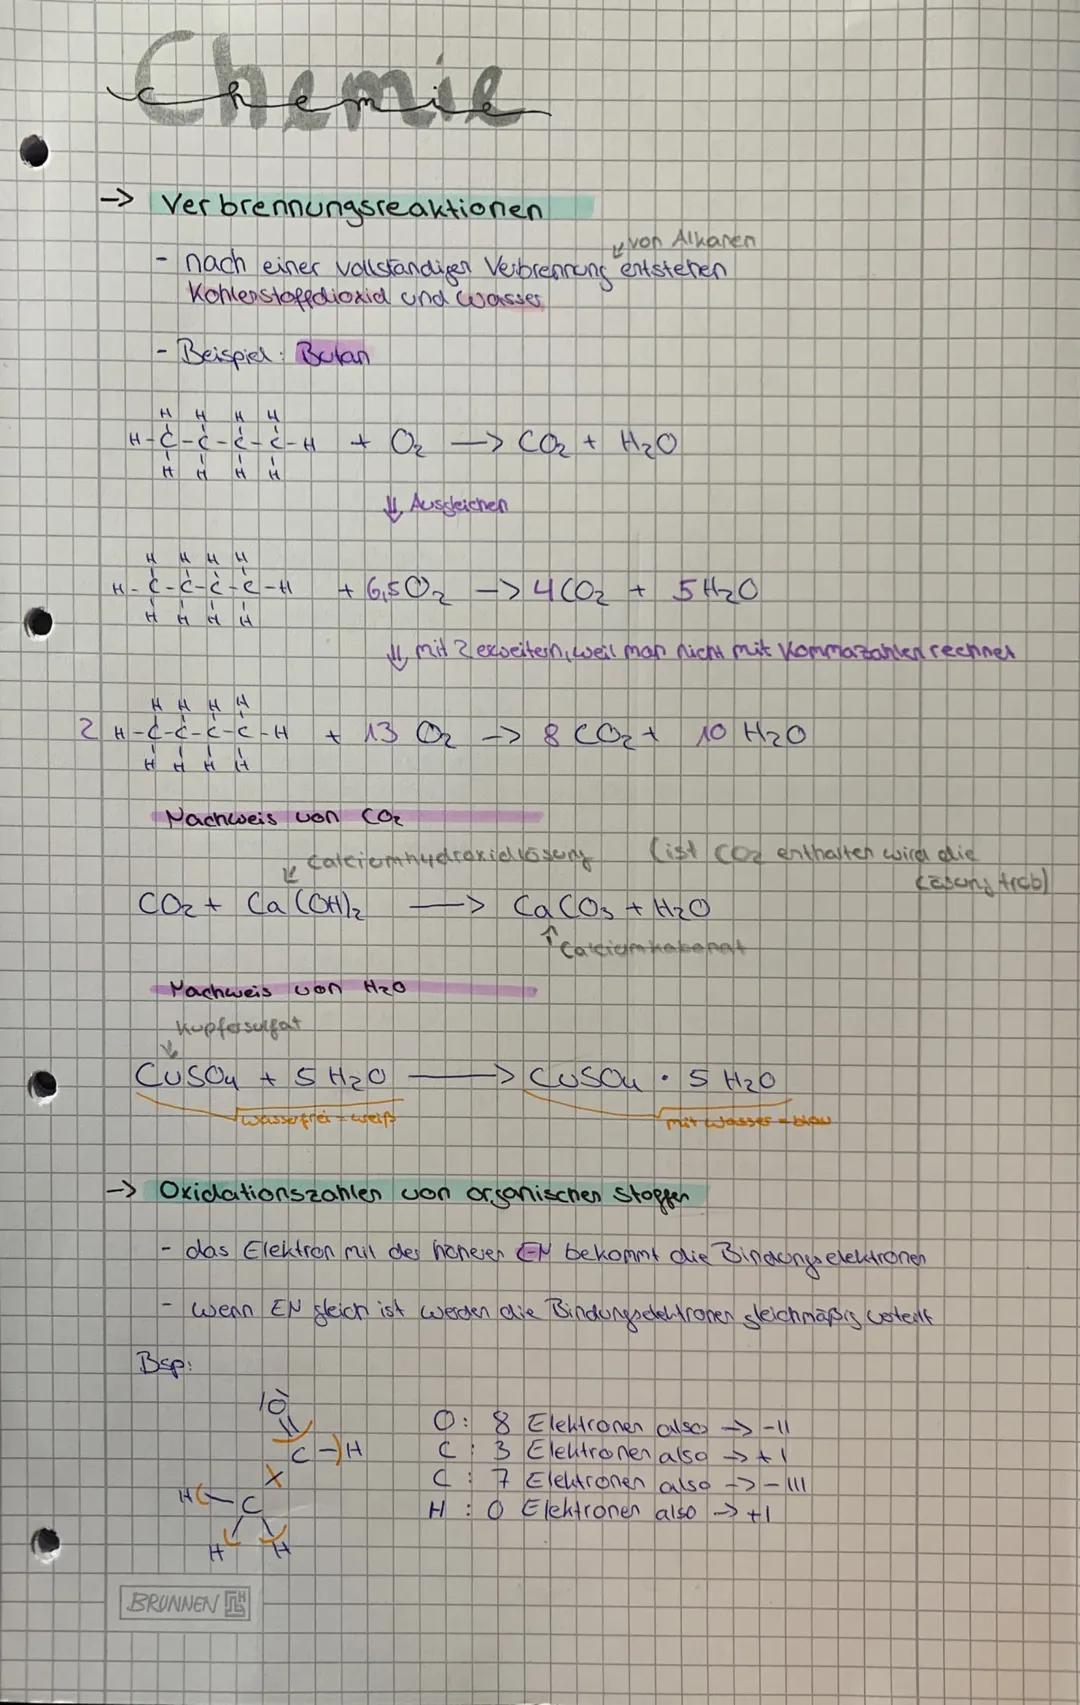 Chemie
chemie
-> Verbrennungsreaktionen
↙ von Alkanen
- nach einer vollständigen Verbrennung entstehen
Kohlenstoffdioxid und Wasser
- Beispiel: Butan
H H H H
H-C-C-C-C-H + O₂ -> CO₂ + H₂O
H H H H
⇓ Ausgleichen
H H H H
H-C-C-C-C-H + 6,5 O₂ -> 4 CO₂ + 5 H₂O
H H H H
⇓ mit 2 erweitern, weil man nicht mit Kommazahlen rechnet
H H H H
2 H-C-C-C-C-H + 13 O₂ -> 8 CO₂ + 10 H₂O
H H H H
Nachweis von CO₂
↙ Calciumhydroxidlösung (ist CO₂ enthalten wird die
Lösung trüb)
CO₂ + Ca(OH)₂ -> CaCO₃ + H₂O
↑ Calciumkabonat
Nachweis von H₂O
Kupfersulfat
↓
CuSO₄ + 5 H₂O -> CuSO₄ · 5 H₂O
wasserfrei = weiß mit Wasser = blau
-> Oxidationszahlen von organischen Stoffen
- das Elektron mit der höheren EN bekommt die Bindungselektronen
- wenn EN gleich ist werden die Bindungselektronen gleichmäßig verteilt
Bsp:
O
C-H
H-C
H H
O: 8 Elektronen also -> -II
C: 3 Elektronen also -> +I
C: 7 Elektronen also -> -III
H: 0 Elektronen also -> +I
BRUNNEN